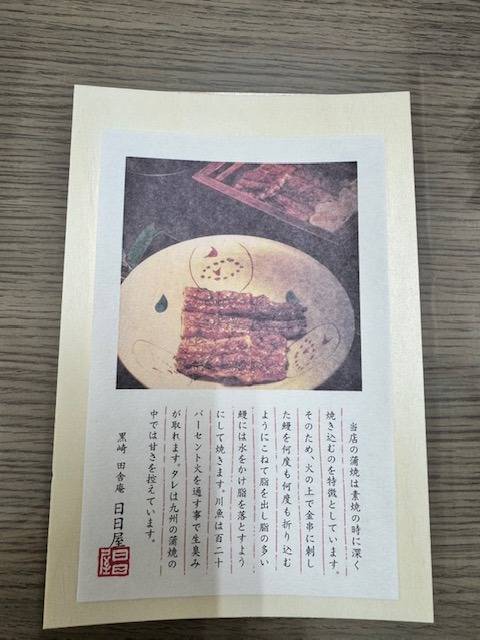 当店の蒲焼は素焼の時に深く
焼き込むのを特徴としています。
そのため、火の上で金串に刺し
た鰻を何度も何度も折り込む
ようにこねて脂を出し脂の多い
鰻には水をかけ脂を落とすよう
にして焼きます。川魚は百二十
パーセント火を通す事で生臭み
が取れます。タレは九州の蒲焼の
中では甘さを控えています。
黒崎 田舎庵 日日屋
日日屋